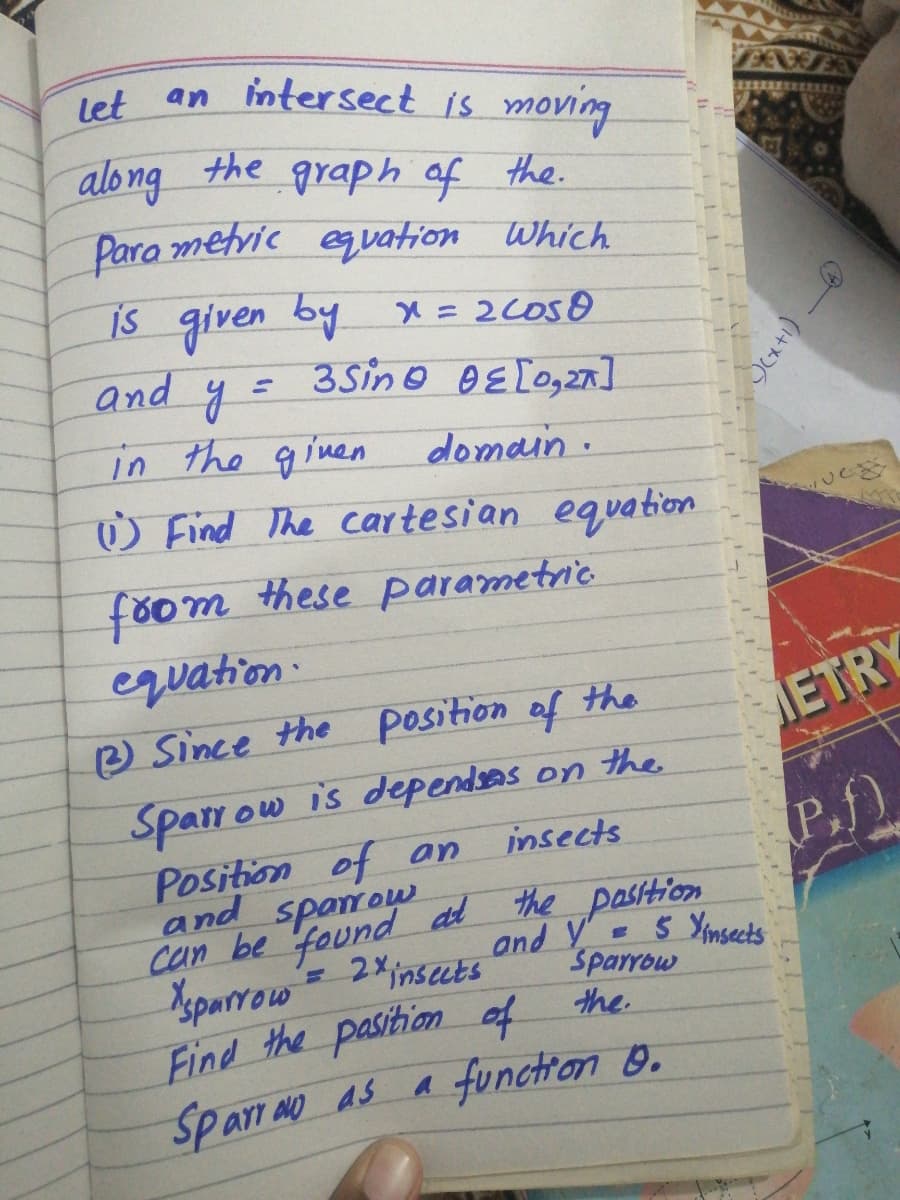 let an intersect is moving
along the graph of the.
Parametric equation Which
is given by x = 2cosθ
and y = 3sinθ θε[0,2π]
in the given domain.
(i) Find The cartesian equation
from these parametric
equation.
(2) Since the position of the
Sparrow is dependses on the
Position of an insects
and sparrow
can be found at the position
xsparrow = 2xinsects and y sparrow = 5 yinsects
Find the position of the.
Sparrow as a function θ.
(x+1)
A
METRY
(P.f)